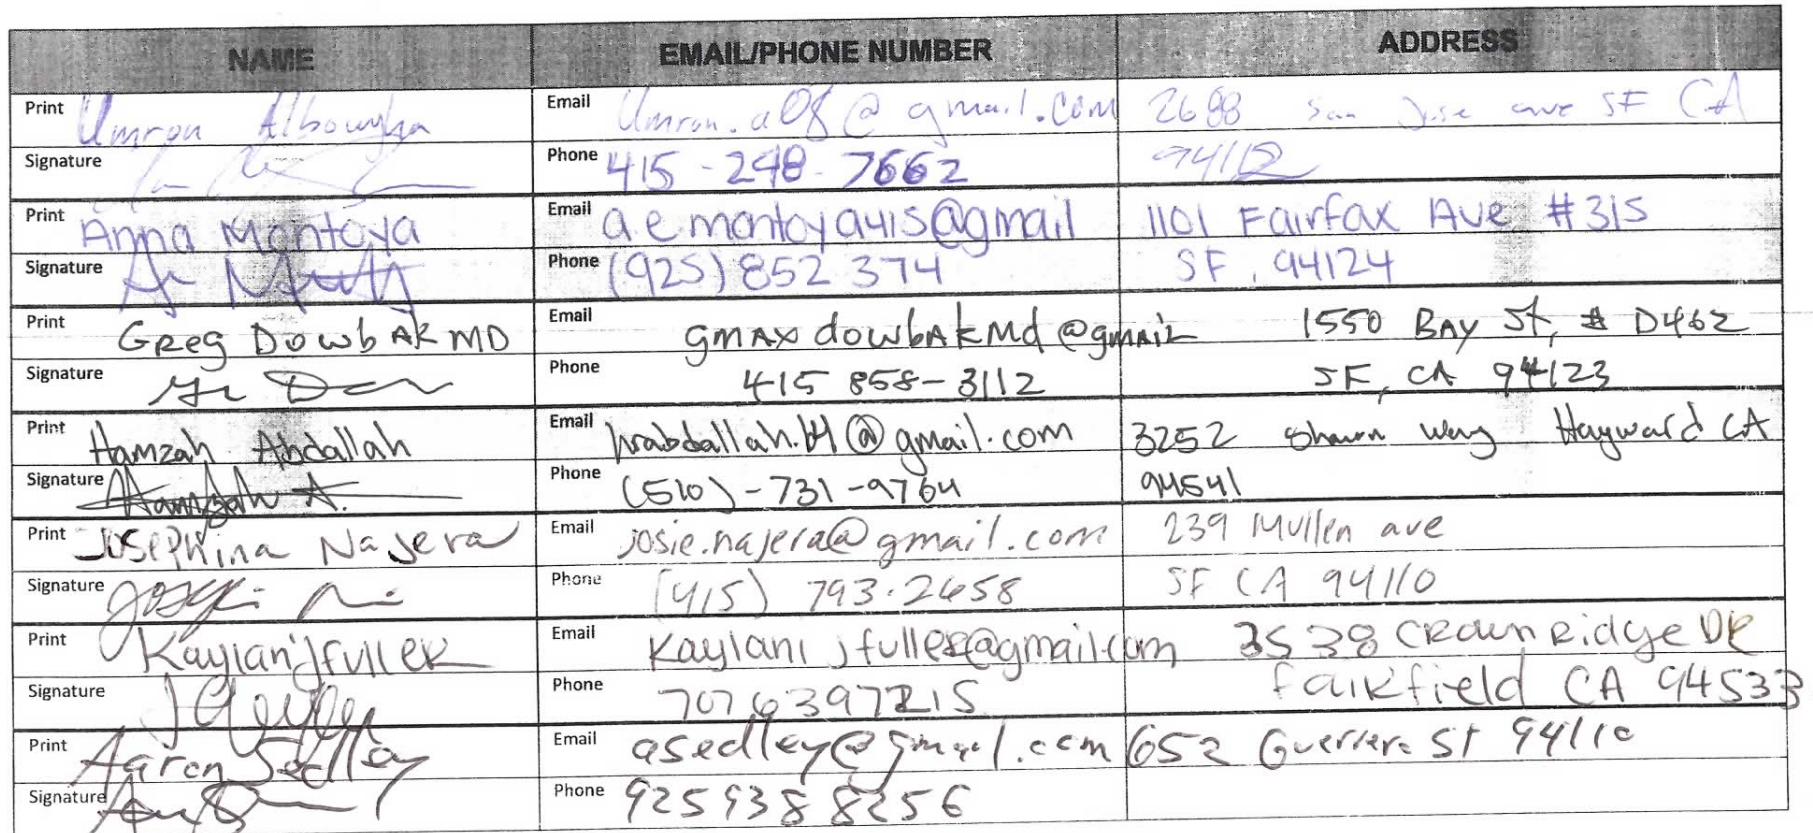 NAME EMAIL/PHONE NUMBER ADDRESS
Print Umron Email Umron.a08@gmail.com 2688 San Jose ave SF CA
Signature Phone 415-248-7662 94112
Print Anna Montoya Email aemontoya415@gmail 1101 Fairfax Ave #315
Signature Phone (925) 852 374 SF, 94124
Print Greg Dowbak MD Email gmaxdowbakMd@gmail 1550 Bay St, # D462
Signature Phone 415 858-3112 SF, CA 94123
Print Hamzah Abdallah Email @gmail.com 3252 Shawn Way Hayward CA
Signature Hamzah A. Phone (510)-731-9764 94541
Print Josephina Najera Email josie.najera@gmail.com 239 Mullen ave
Signature Phone (415) 793.2658 SF CA 94110
Print Kaylani J Fuller Email Kaylanijfuller@gmail.com 3538 Crown Ridge DR
Signature Phone 7076397215 Fairfield CA 94533
Print Aaron Sedley Email asedley@gmail.com 652 Guerrero St 94110
Signature Phone 9259388256